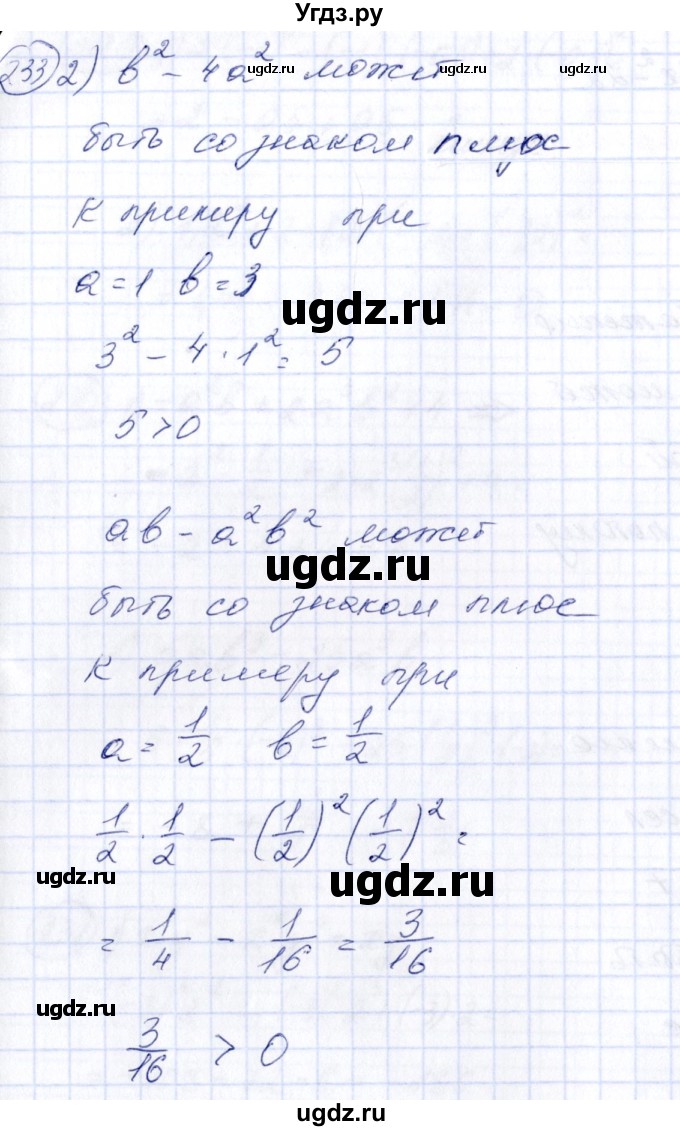 Угдз.ру
233 2) b² - 4a² может
ugdz.ru ugdz.ru ugdz.ru
быть со знаком плюс
К примеру при
a = 1 b = 3
ugdz.ru
3² - 4 · 1² = 5
5 > 0
ab - a²b² может
ugdz.ru
быть со знаком плюс
К примеру при
a = 1/2 b = 1/2
1/2 · 1/2 - (1/2)² (1/2)² =
ugdz.ru ugdz.ru
= 1/4 - 1/16 = 3/16
ugdz.ru
3/16 > 0
ugdz.ru